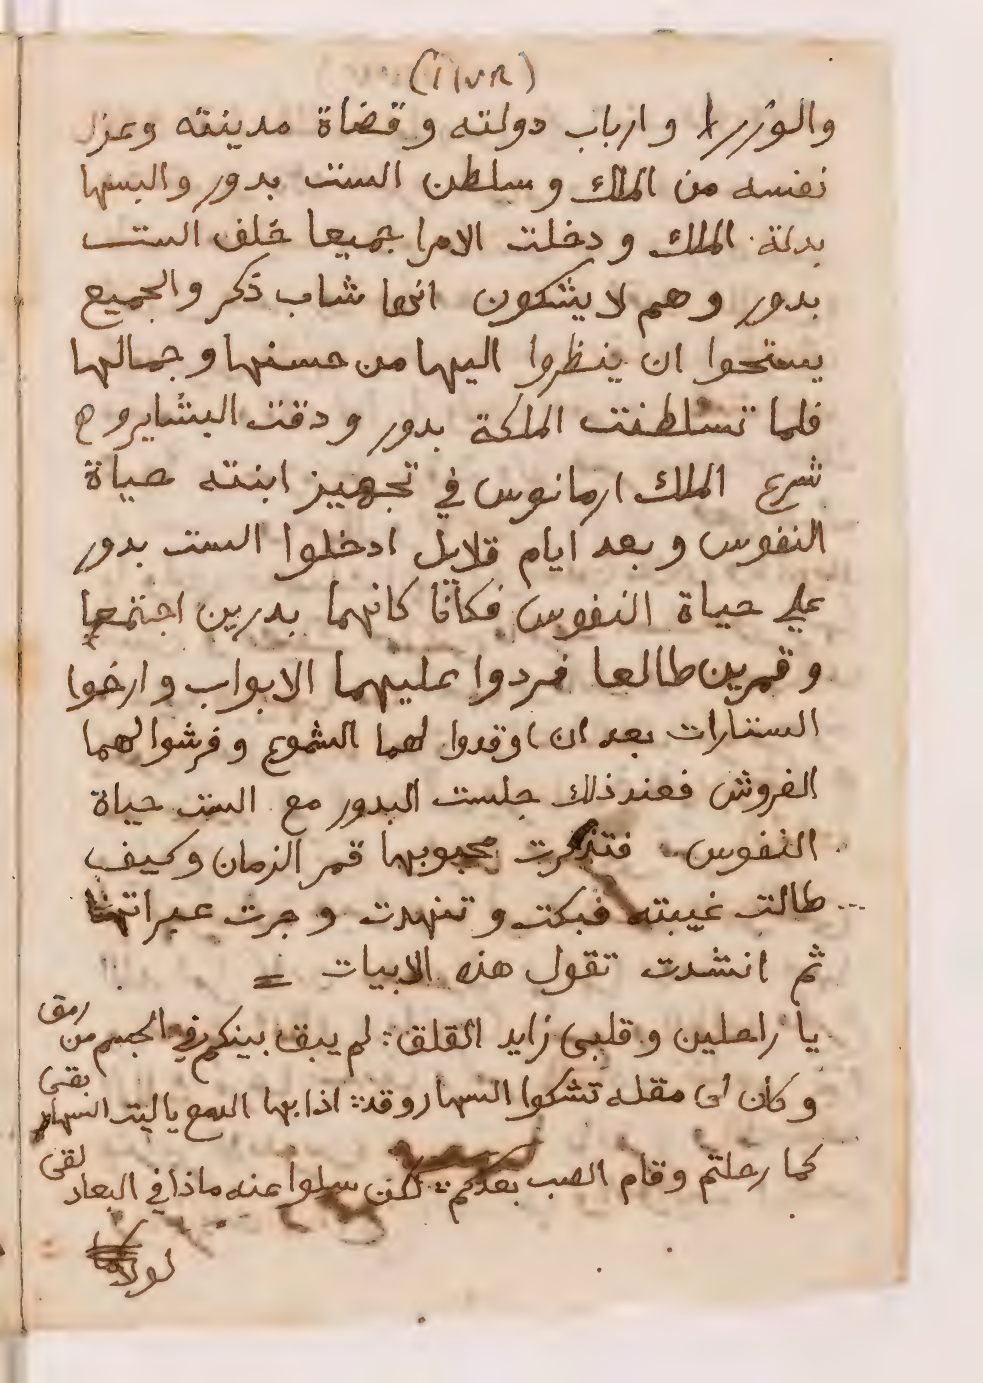 والوزرا و ارباب دولته و قضاة مدينته وعزل
نفسه من الملك و سلطن الست بدور والبسها
بدلة الملك و دخلت الامرا جميعا خلف الست
بدور و هم لا يشكون انها شاب ذكر والجميع
يستحوا ان ينظروا اليها من حسنها و جمالها
فلما تسلطنت الملكة بدور و دقت البشاير و ح
شرع الملك ارمانوس في تجهيز ابنته حياة
النفوس و بعد ايام قلايل ادخلوا الست بدور
علي حياة النفوس فكانا كانهما بدرين اجتمعا
و قمرين طالعا فردوا عليهما الابواب و ارخوا
الستارات بعد ان اوقدوا لهما الشموع و فرشوا لهما
الفروش فعند ذلك جلست البدور مع الست حياة
النفوس فتذكرت محبوبها قمر الزمان و كيف
طالت غيبته فبكت و تنهدت و جرت عبراتها
ثم انشدت تقول هذه الابيات =
يا راحلين و قلبي زايد القلق : لم يبق بينكم في الجسم من رمق
و كان لى مقله تشكوا السهار وقد : اذابها الدمع ياليت السهار بقى
كما رحلتم وقام الصب بعدكم : لكن سلوا عنه ماذا في البعاد لقى
لولاكما